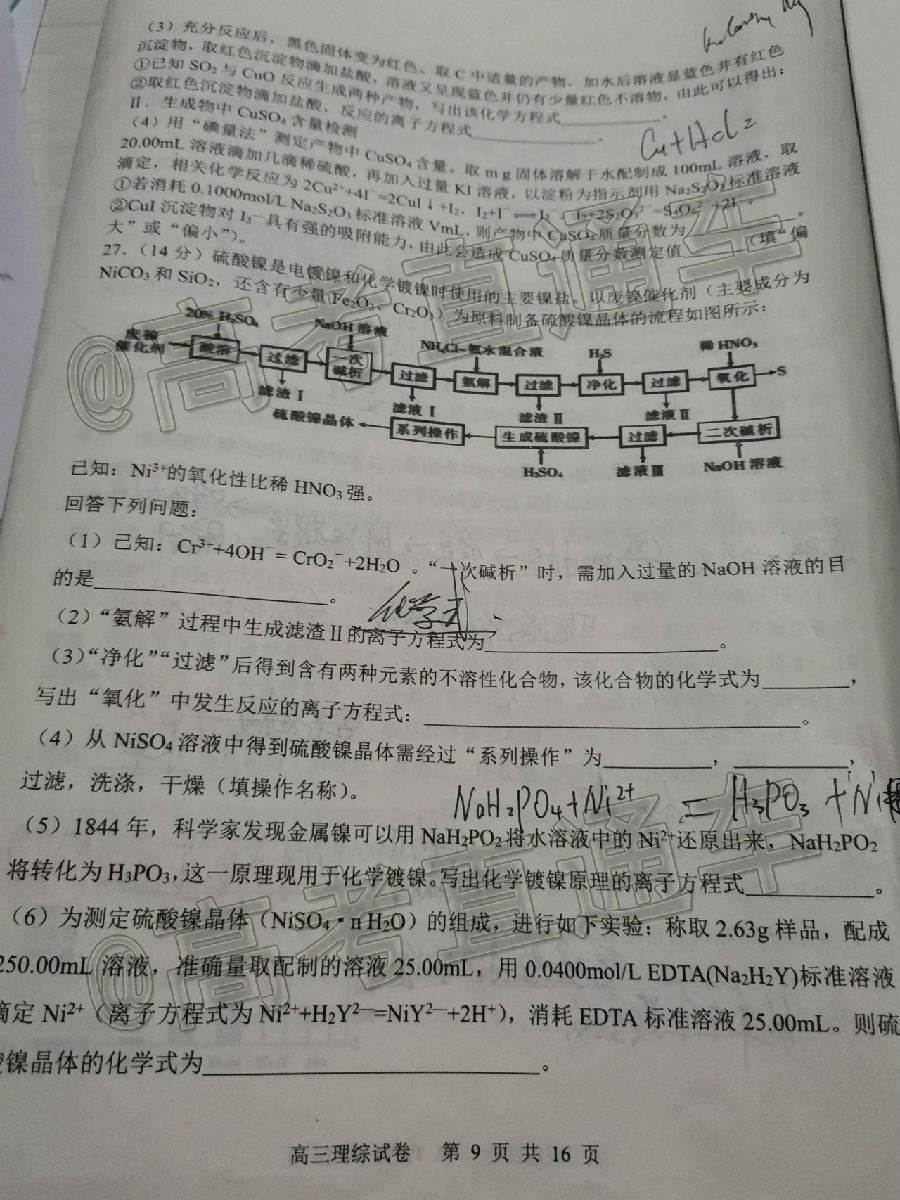 (3) 充分反应后，黑色固体变为红色。取 C 中适量的产物，加水后溶液显蓝色并有红色
沉淀物，取红色沉淀物滴加盐酸，溶液又呈现蓝色并仍有少量红色不溶物，由此可以得出：
①已知 SO₂ 与 CuO 反应生成两种产物，写出该化学方程式____________。
②取红色沉淀物滴加盐酸，反应的离子方程式____________。
Cu+HCl=
II．生成物中 CuSO₄ 含量检测
(4) 用“碘量法”测定产物中 CuSO₄ 含量。取 m g 固体溶解于水配制成 100mL 溶液，取
20.00mL 溶液滴加几滴稀硫酸，再加入过量 KI 溶液，以淀粉为指示剂用 Na₂S₂O₃ 标准溶液
滴定，相关化学反应为 2Cu²⁺+4I⁻=2CuI↓+I₂，I₂+I⁻⇌I₃⁻，I₂+2S₂O₃²⁻=S₄O₆²⁻+2I⁻。
①若消耗 0.1000mol/L Na₂S₂O₃ 标准溶液 VmL，则产物中 CuSO₄ 质量分数为________。
②CuI 沉淀物对 I₃⁻ 具有强的吸附能力，由此会造成 CuSO₄ 质量分数测定值______（填“偏
大”或“偏小”）。
27．(14 分) 硫酸镍是电镀镍和化学镀镍时使用的主要镍盐。以废镍催化剂（主要成分为
NiCO₃ 和 SiO₂，还含有少量 Fe₂O₃、Cr₂O₃）为原料制备硫酸镍晶体的流程如图所示：
20% H₂SO₄ NaOH 溶液 NH₄Cl-氨水混合液 H₂S 稀 HNO₃
废镍催化剂 酸溶 过滤 一次碱析 过滤 氨解 过滤 净化 过滤 氧化 S
滤渣 I 滤液 I 滤渣 II 滤液 II
硫酸镍晶体 系列操作 生成硫酸镍 过滤 二次碱析
H₂SO₄ 滤液 III NaOH 溶液
已知：Ni³⁺的氧化性比稀 HNO₃ 强。
回答下列问题：
(1) 已知：Cr³⁺+4OH⁻= CrO₂⁻+2H₂O 。“一次碱析”时，需加入过量的 NaOH 溶液的目
的是____________________。
化学式
(2)“氨解”过程中生成滤渣 II 的离子方程式为____________________。
(3)“净化”“过滤”后得到含有两种元素的不溶性化合物，该化合物的化学式为________，
写出“氧化”中发生反应的离子方程式：______________________________。
(4) 从 NiSO₄ 溶液中得到硫酸镍晶体需经过“系列操作”为__________，__________，
过滤，洗涤，干燥（填操作名称）。
NaH₂PO₄+Ni²⁺ = H₃PO₃ +Ni
(5) 1844 年，科学家发现金属镍可以用 NaH₂PO₂ 将水溶液中的 Ni²⁺还原出来，NaH₂PO₂
将转化为 H₃PO₃，这一原理现用于化学镀镍。写出化学镀镍原理的离子方程式____________。
(6) 为测定硫酸镍晶体（NiSO₄·n H₂O）的组成，进行如下实验：称取 2.63g 样品，配成
250.00mL 溶液，准确量取配制的溶液 25.00mL，用 0.0400mol/L EDTA(Na₂H₂Y)标准溶液
滴定 Ni²⁺（离子方程式为 Ni²⁺+H₂Y²⁻=NiY²⁻+2H⁺），消耗 EDTA 标准溶液 25.00mL。则硫
酸镍晶体的化学式为______________________________。
高三理综试卷 第 9 页 共 16 页
@高考直通车
@高考直通车